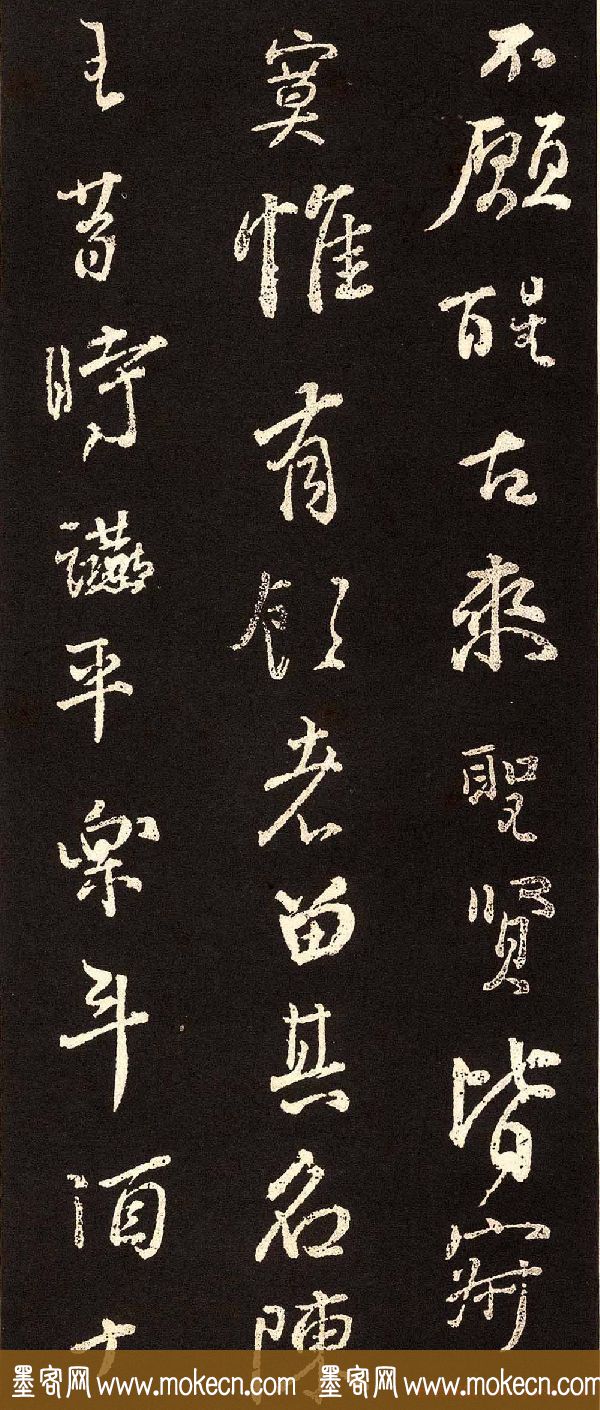 不願醒古來聖賢皆寂
寞惟有飲者留其名陳
王昔時讌平樂斗酒十
墨客网 www.mokecn.com 墨客网 www.mokecn.com